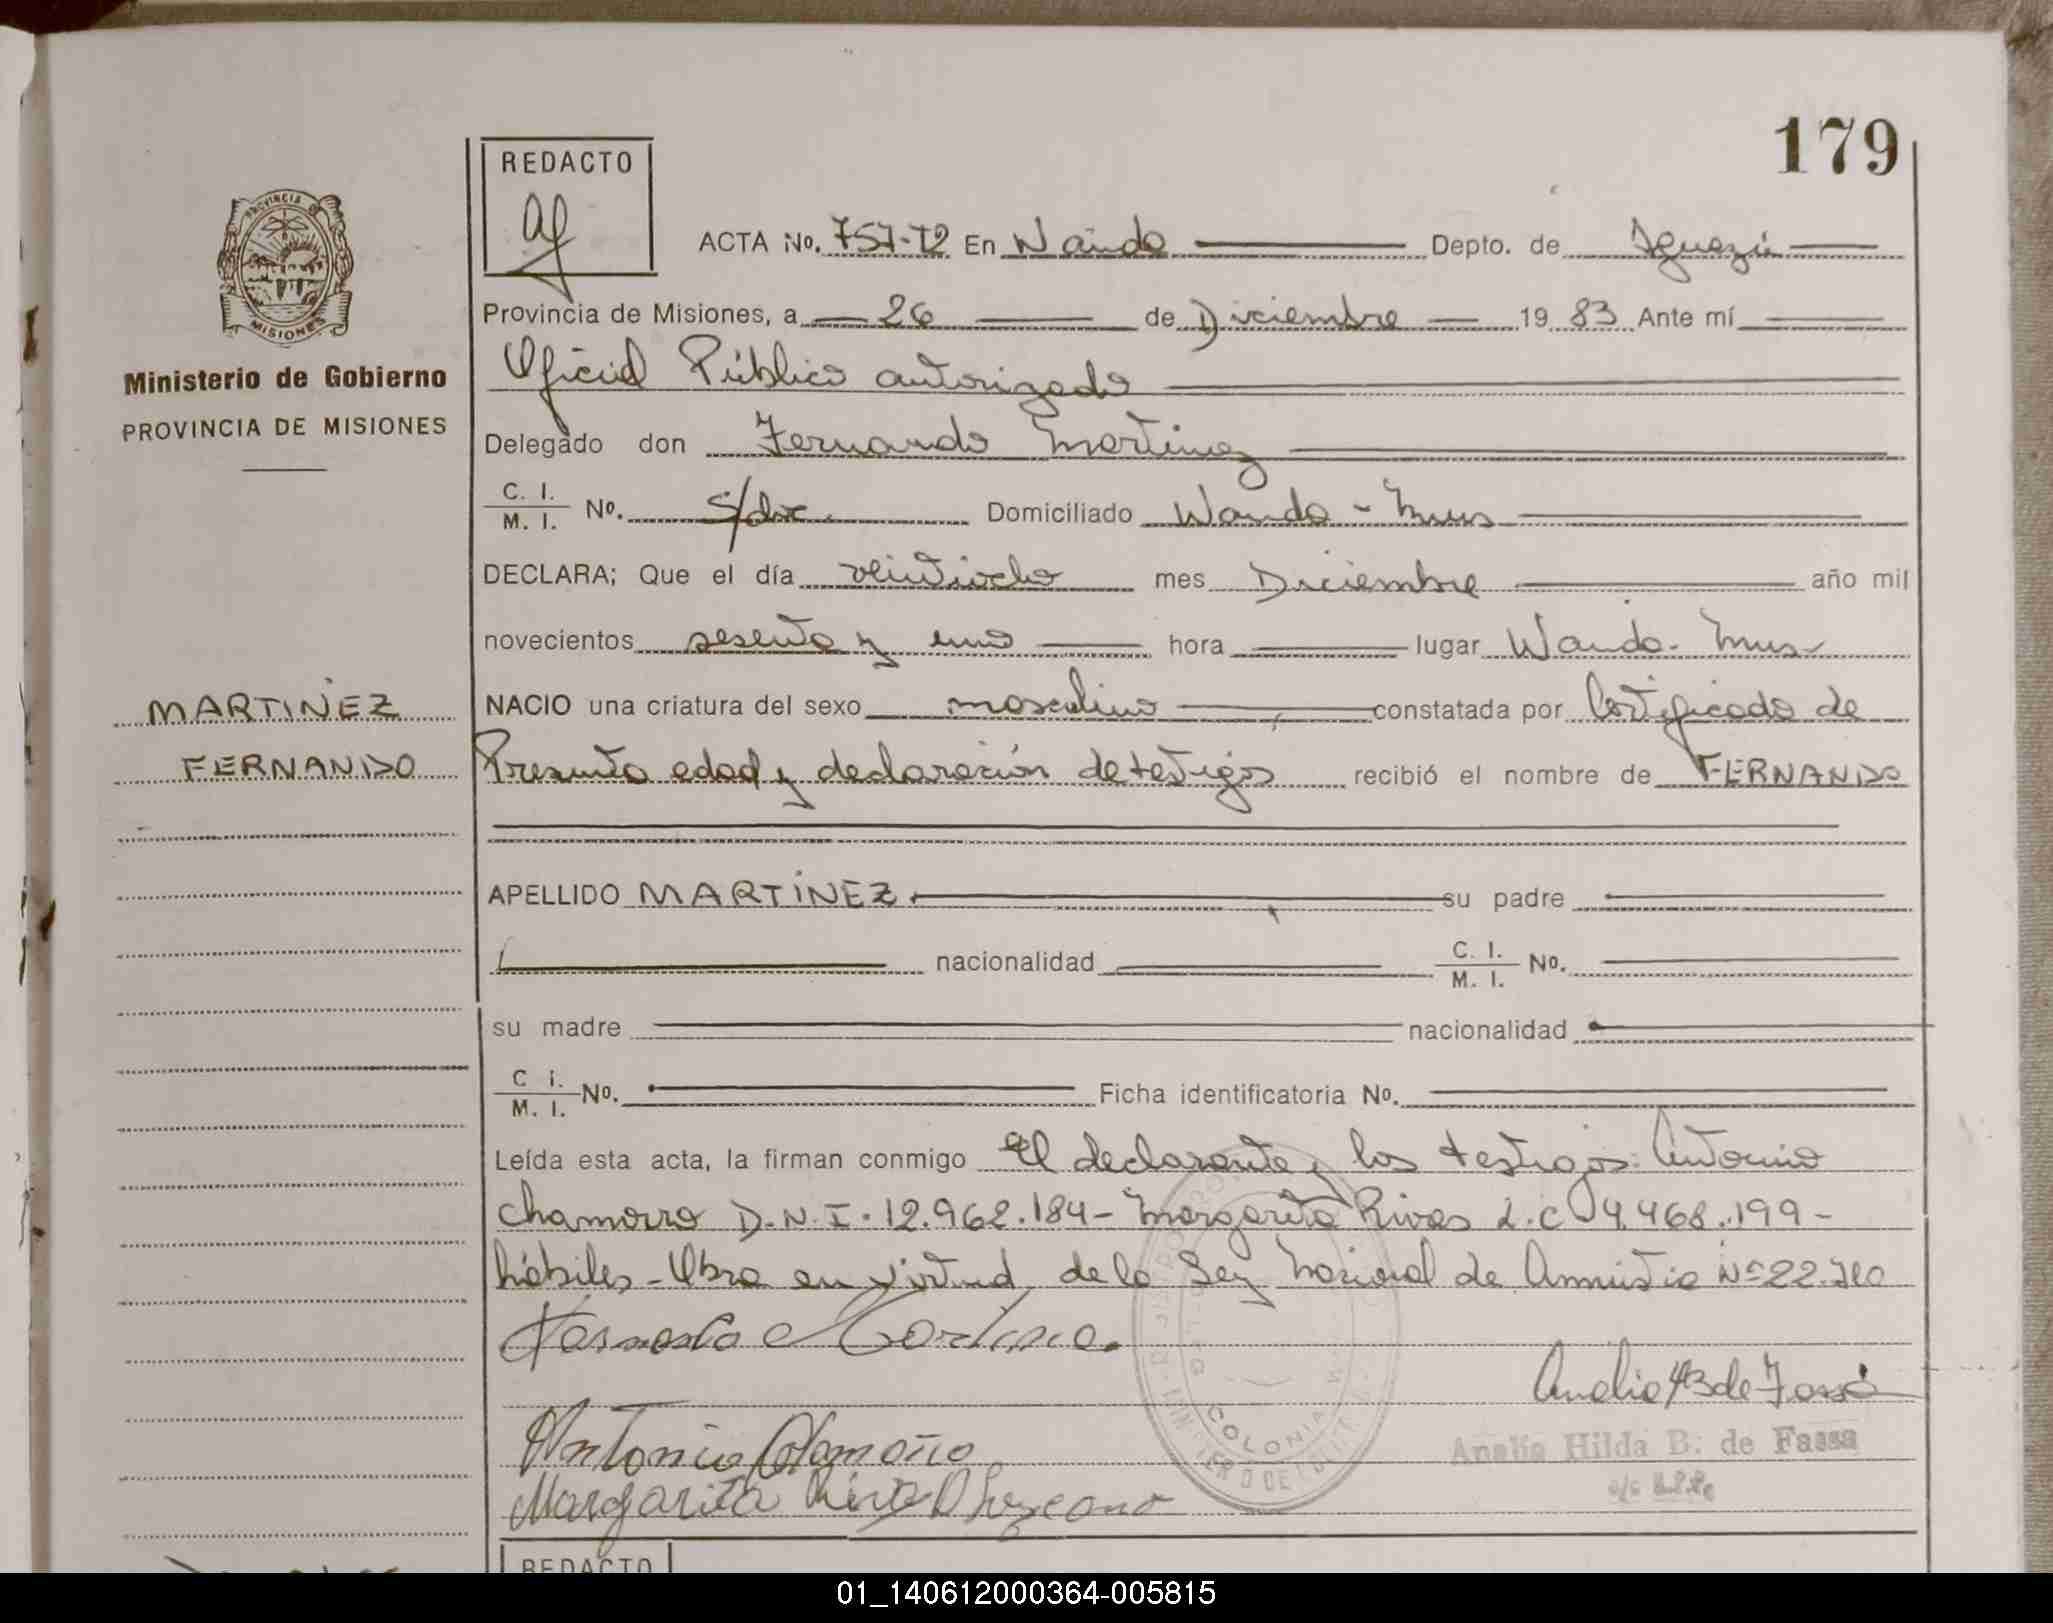 179
REDACTO
PROVINCIA DE
MISIONES
Ministerio de Gobierno
PROVINCIA DE MISIONES
ACTA No. 757-T2 En Wanda Depto. de Iguazú
Provincia de Misiones, a 26 de Diciembre 19 83 Ante mí
Oficial Público autorizado
Delegado don Fernando Martinez
C. I.
M. I. No. S/doc. Domiciliado Wanda - Mnes
DECLARA; Que el día veintiocho mes Diciembre año mil
novecientos sesenta y uno hora lugar Wanda - Mnes
MARTINEZ
NACIO una criatura del sexo masculino constatada por Certificado de
FERNANDO
Presunta edad y declaración de testigos recibió el nombre de FERNANDO
APELLIDO MARTINEZ su padre
nacionalidad C. I.
M. I. No.
su madre nacionalidad
C I.
M. I. No. Ficha identificatoria No.
Leída esta acta, la firman conmigo El declarante y los testigos: Antonio
Chamorro D.N.I. 12.962.184 - Margarita Rivas L.C 4.468.199 -
hábiles - Obra en virtud de la Ley Nacional de Amnistia Nº 22.
Antonio
Margarita
COLONIA
Analia H B de Fassa
Analía Hilda B. de Fassa
REDACTO
01_140612000364-005815